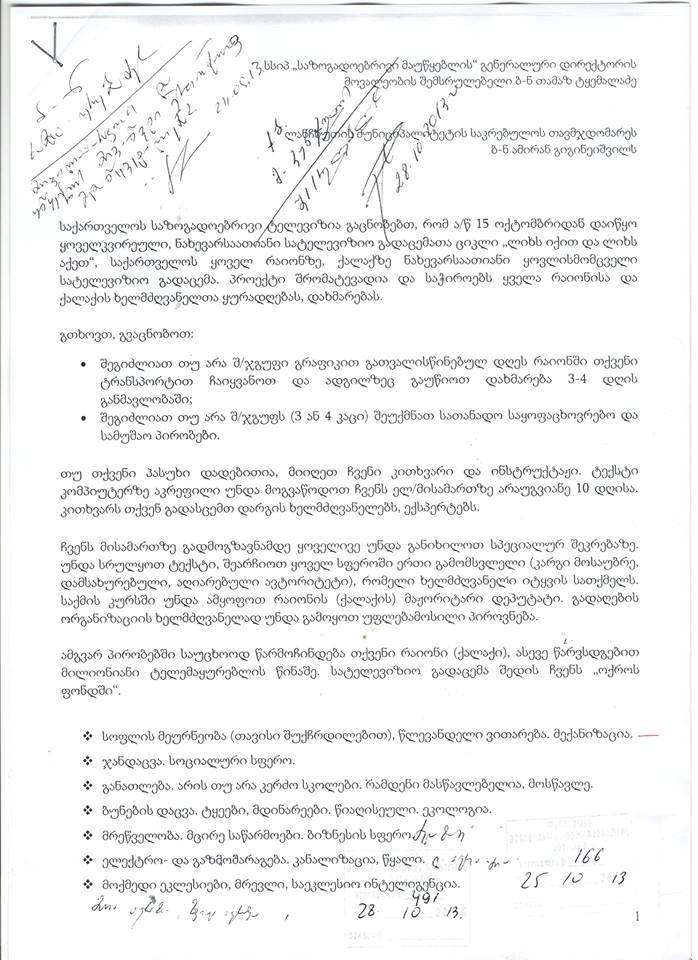 სსიპ „საზოგადოებრივი მაუწყებლის“ გენერალური დირექტორის
მოვალეობის შემსრულებელი ბ-ნ თამაზ ტყემალაძე
ლანჩხუთის მუნიციპალიტეტის საკრებულოს თავმჯდომარეს
ბ-ნ ამირან გიგინეიშვილს
28.10.2013
საქართველოს საზოგადოებრივი ტელევიზია გაცნობებთ, რომ ა/წ 15 ოქტომბრიდან დაიწყო
ყოველკვირეული, ნახევარსაათიანი სატელევიზიო გადაცემათა ციკლი „ლიხს იქით და ლიხს
აქეთ“, საქართველოს ყოველ რაიონზე, ქალაქზე ნახევარსაათიანი ყოვლისმომცველი
სატელევიზიო გადაცემა. პროექტი შრომატევადია და საჭიროებს ყველა რაიონისა და
ქალაქის ხელმძღვანელთა ყურადღებას, დახმარებას.
გთხოვთ, გვაცნობოთ:
• შეგიძლიათ თუ არა შ/ჯგუფი გრაფიკით გათვალისწინებულ დღეს რაიონში თქვენი
ტრანსპორტით ჩაიყვანოთ და ადგილზეც გაუწიოთ დახმარება 3-4 დღის
განმავლობაში;
• შეგიძლიათ თუ არა შ/ჯგუფს (3 ან 4 კაცი) შეუქმნათ სათანადო საყოფაცხოვრებო და
სამუშაო პირობები.
თუ თქვენი პასუხი დადებითია, მიიღეთ ჩვენი კითხვარი და ინსტრუქტაჟი. ტექსტი
კომპიუტერზე აკრეფილი უნდა მოგვაწოდოთ ჩვენს ელ/მისამართზე არაუგვიანე 10 დღისა.
კითხვარს თქვენ გადასცემთ დარგის ხელმძღვანელებს, ექსპერტებს.
ჩვენს მისამართზე გადმოგზავნამდე ყოველივე უნდა განიხილოთ სპეციალურ შეკრებაზე.
უნდა სრულყოთ ტექსტი, შეარჩიოთ ყოველ სფეროში ერთი გამომსვლელი (კარგი მოსაუბრე,
დამსახურებული, აღიარებული ავტორიტეტი), რომელი ხელმძღვანელი იტყვის სათქმელს.
საქმის კურსში უნდა ამყოფოთ რაიონის (ქალაქის) მაჟორიტარი დეპუტატი. გადაღების
ორგანიზაციის ხელმძღვანელად უნდა გამოყოთ უფლებამოსილი პიროვნება.
ამგვარ პირობებში საუცხოოდ წარმოჩინდება თქვენი რაიონი (ქალაქი), ასევე წარვსდგებით
მილიონიანი ტელემაყურებლის წინაშე. სატელევიზიო გადაცემა შედის ჩვენს „ოქროს
ფონდში“.
❖ სოფლის მეურნეობა (თავისი შუქჩრდილებით), წლევანდელი ვითარება. მექანიზაცია.
❖ ჯანდაცვა. სოციალური სფერო.
❖ განათლება. არის თუ არა კერძო სკოლები. რამდენი მასწავლებელია, მოსწავლე.
❖ ბუნების დაცვა. ტყეები, მდინარეები. წიაღისეული. ეკოლოგია.
❖ მრეწველობა. მცირე საწარმოები. ბიზნესის სფერო.
❖ ელექტრო- და გაზმომარაგება. კანალიზაცია, წყალი.
166
❖ მოქმედი ეკლესიები, მრევლი, საეკლესიო ინტელიგენცია.
25 10 13
491
28 10 13.
1